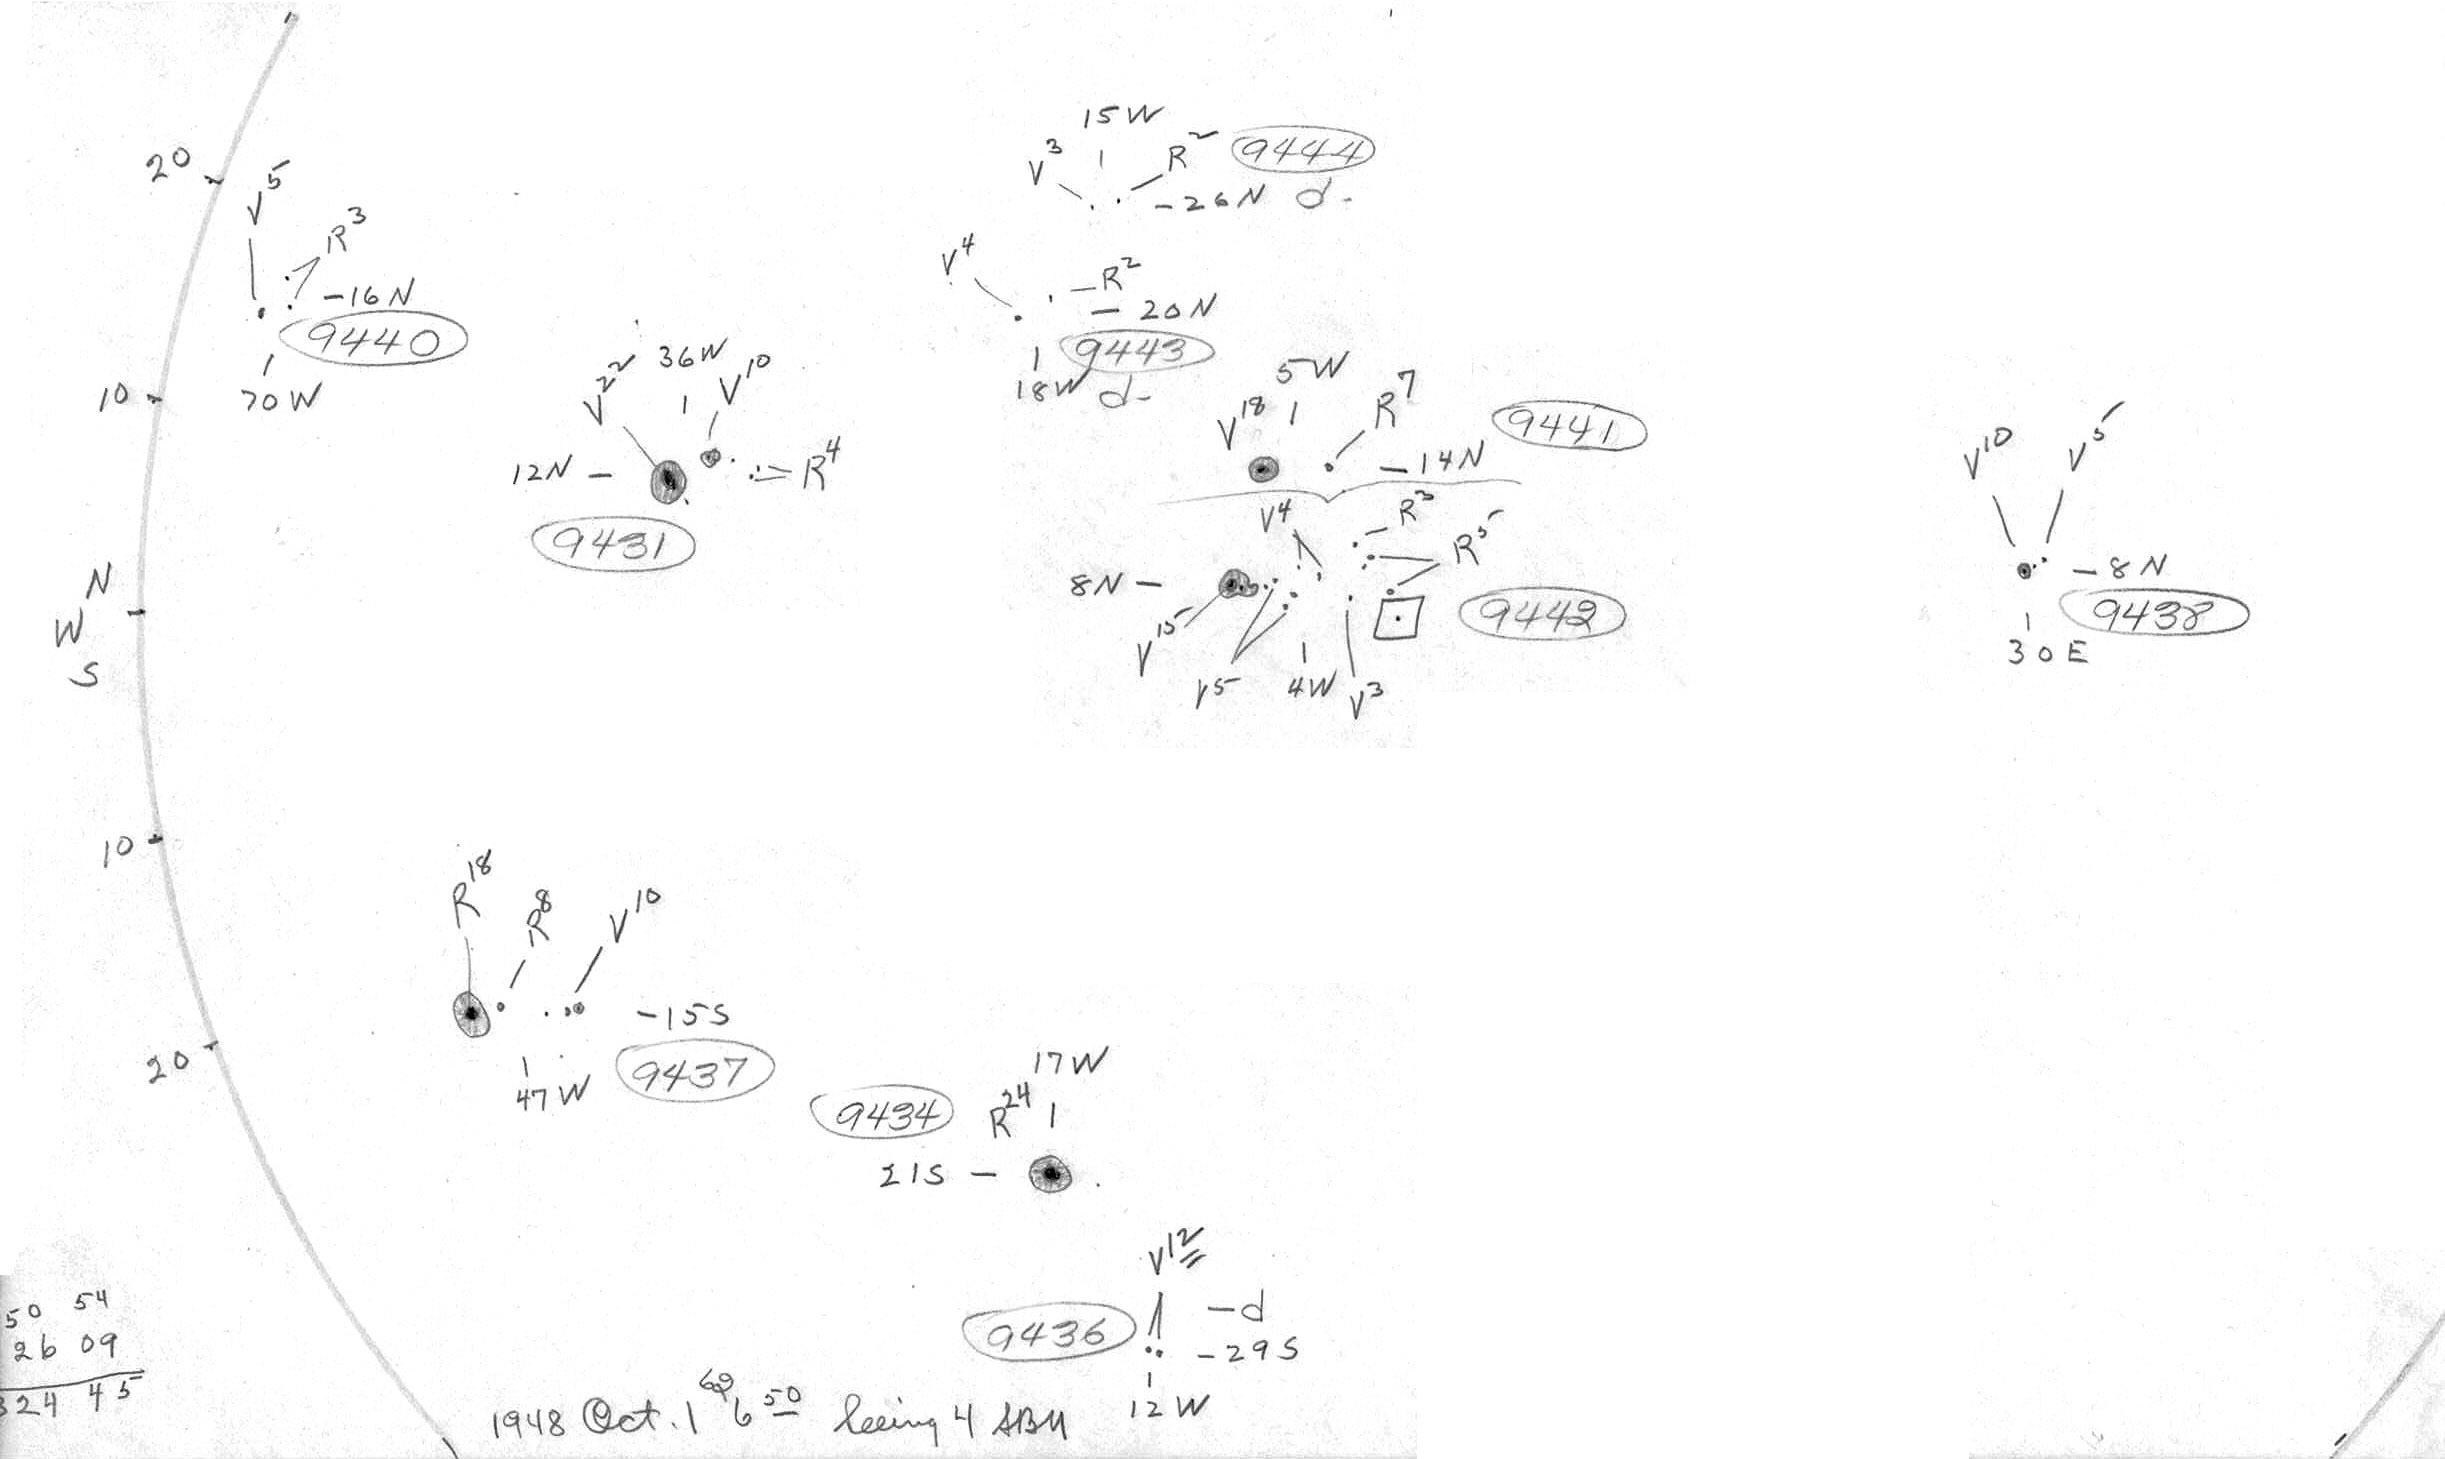 15W
V³ R² 9444
-26N d-
20
V⁵
R³
-16N
9440
70W
V⁴ -R²
- 20N
9443
18W d-
36W
V²² V¹⁰
12N - = R⁴
9431
10
5W
V¹⁸ R⁷ 9441
-14N
V⁴ R³
R⁵
8N - 9442
V¹⁵
V5 4W V³
V¹⁰ V⁵
-8N
9438
30E
N
W
S
10
R¹⁸ R⁸ V¹⁰
-15S
47W 9437
20
17W
9434 R²⁴
21S -
V¹²
9436 -d
-29S
12W
50 54
26 09
324 45
1948 Oct. 1 6⁵⁰ Seeing 4 SBN